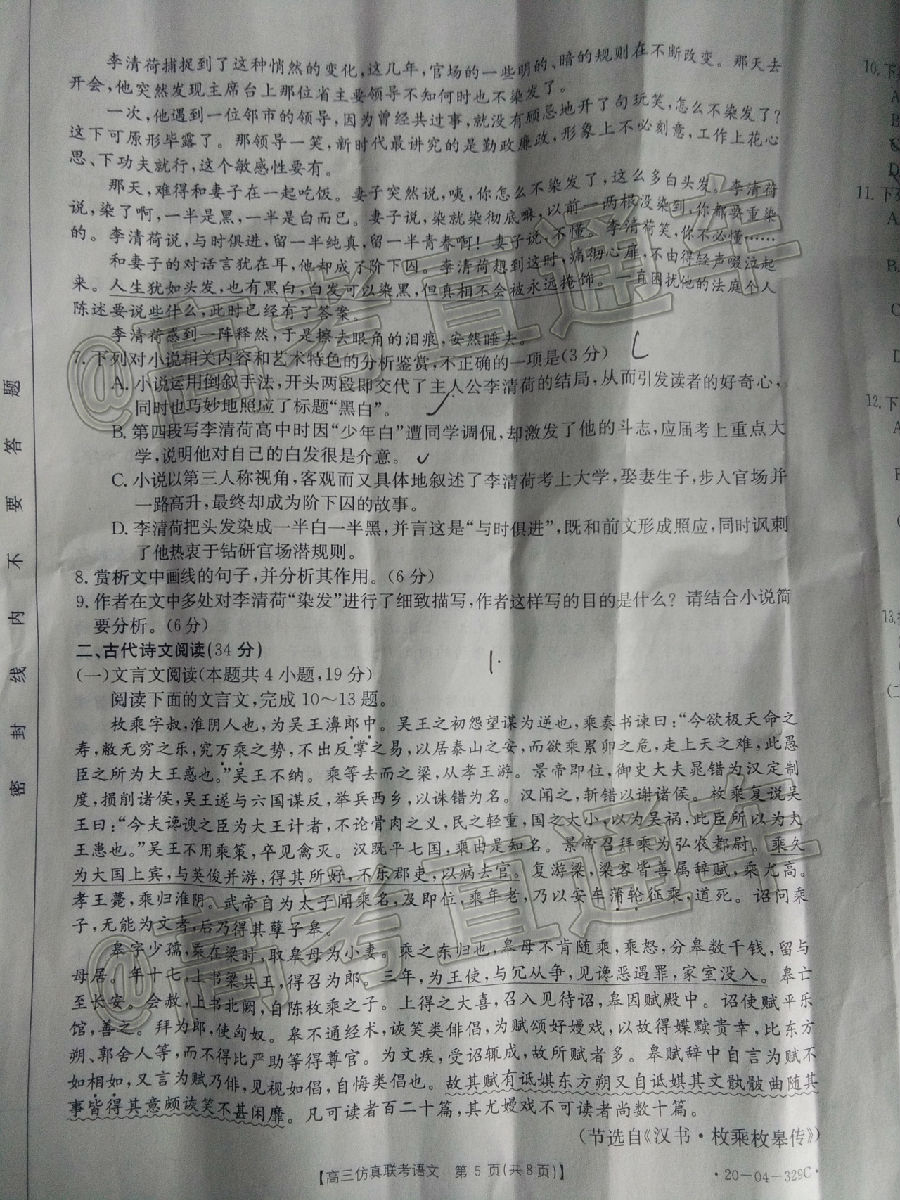 李清荷捕捉到了这种悄然的变化,这几年,官场的一些明的、暗的规则在不断改变。那天去
开会,他突然发现主席台上那位省主要领导不知何时也不染发了。
一次,他遇到一位邻市的领导,因为曾经共过事,就没有顾忌地开了句玩笑,怎么不染发了?
这下可原形毕露了。那领导一笑,新时代最讲究的是勤政廉政,形象上不必刻意,工作上花心
思、下功夫就行,这个敏感性要有。
那天,难得和妻子在一起吃饭。妻子突然说,咦,你怎么不染发了,这么多白头发。李清荷
说,染了啊,一半是黑,一半是白而已。妻子说,染就染彻底嘛,以前一两根没染到,你都要重染
的。李清荷说,与时俱进,留一半纯真,留一半青春啊!妻子说,不懂。李清荷笑,你不必懂……
和妻子的对话言犹在耳,他却成了阶下囚。李清荷想到这时,痛彻心扉,不由得轻声啜泣起
来。人生犹如头发,也有黑白,白发可以染黑,但真相不会被永远掩饰。一直困扰他的法庭个人
陈述要说些什么,此时已经有了答案。
李清荷感到一阵释然,于是擦去眼角的泪痕,安然睡去。
7.下列对小说相关内容和艺术特色的分析鉴赏,不正确的一项是(3分)
A.小说运用倒叙手法,开头两段即交代了主人公李清荷的结局,从而引发读者的好奇心,
同时也巧妙地照应了标题“黑白”。
B.第四段写李清荷高中时因“少年白”遭同学调侃,却激发了他的斗志,应届考上重点大
学,说明他对自己的白发很是介意。
C.小说以第三人称视角,客观而又具体地叙述了李清荷考上大学,娶妻生子,步入官场并
一路高升,最终却成为阶下囚的故事。
D.李清荷把头发染成一半白一半黑,并言这是“与时俱进”,既和前文形成照应,同时讽刺
了他热衷于钻研官场潜规则。
8.赏析文中画线的句子,并分析其作用。(6分)
9.作者在文中多处对李清荷“染发”进行了细致描写,作者这样写的目的是什么?请结合小说简
要分析。(6分)
二、古代诗文阅读(34分)
(一)文言文阅读(本题共4小题,19分)
阅读下面的文言文,完成10~13题。
枚乘字叔,淮阴人也,为吴王濞郎中。吴王之初怨望谋为逆也,乘奏书谏曰:“今欲极天命之
寿,敝无穷之乐,究万乘之势,不出反掌之易,以居泰山之安,而欲乘累卵之危,走上天之难,此愚
臣之所为大王惑也。”吴王不纳。乘等去而之梁,从孝王游。景帝即位,御史大夫晁错为汉定制
度,损削诸侯,吴王遂与六国谋反,举兵西乡,以诛错为名。汉闻之,斩错以谢诸侯。枚乘复说吴
王曰:“今夫谗谀之臣为大王计者,不论骨肉之义,民之轻重,国之大小,以为吴祸,此臣所以为大
王患也。”吴王不用乘策,卒见禽灭。汉既平七国,乘由是知名。景帝召拜乘为弘农都尉。乘久
为大国上宾,与英俊并游,得其所好,不乐郡吏,以病去官。复游梁,梁客皆善属辞赋,乘尤高。
孝王薨,乘归淮阴。武帝自为太子闻乘名,及即位,乘年老,乃以安车蒲轮征乘,道死。诏问乘
子,无能为文者,后乃得其孽子皋。
皋字少孺,乘在梁时,取皋母为小妻。乘之东归也,皋母不肯随乘,乘怒,分皋数千钱,留与
母居。年十七,上书梁共王,得召为郎。三年,为王使,与冗从争,见谗恶遇罪,家室没入。皋亡
至长安。会赦,上书北阙,自陈枚乘之子。上得之大喜,召入见待诏,皋因赋殿中。诏使赋平乐
馆,善之。拜为郎,使匈奴。皋不通经术,诙笑类俳倡,为赋颂好嫚戏,以故得媟黩贵幸,比东方
朔、郭舍人等,而不得比严助等得尊官。为文疾,受诏辄成,故所赋者多。皋赋辞中自言为赋不
如相如,又言为赋乃俳,见视如倡,自悔类倡也。故其赋有诋娸东方朔又自诋娸其文骩骳曲随其
事皆得其意颇诙笑不甚闲靡。凡可读者百二十篇,其尤嫚戏不可读者尚数十篇。
(节选自《汉书·枚乘枚皋传》)
【高三仿真联考语文 第5页(共8页)】
·20-04-329C·
密 封 线 内 不 要 答 题
10.下
A
B
D
11.下列
A.
B.
C
D
12.下
A
13.
(二
@高考直通车
@高考直通车